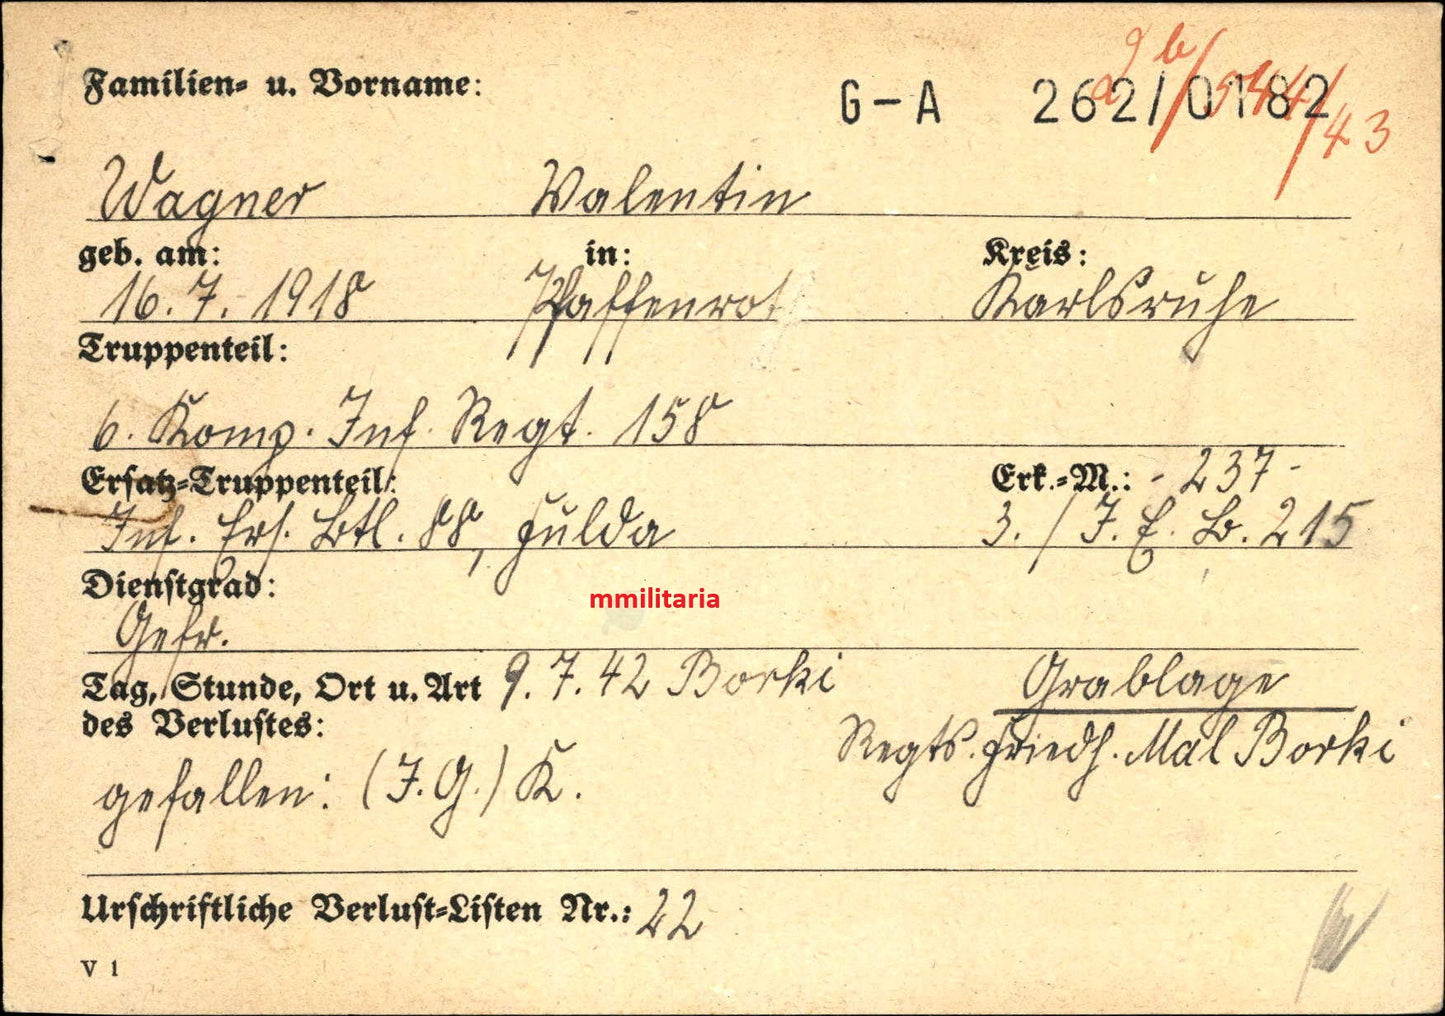 Familien- u. Vorname:
G-A 262/0182
Wagner Valentin
geb. am: in: Kreis:
16. 7. 1918 Pfaffenrot Karlsruhe
Truppenteil:
6. Komp. Inf. Regt. 158
Ersatz-Truppenteil: Erk.-M.: - 237 -
Inf. Ers. Btl. 88, Fulda 3. / J. E. B. 215
Dienstgrad:
Gefr.
Tag, Stunde, Ort u. Art 9. 7. 42 Borki Grablage
des Verlustes: Regts. Friedh. Mal Borki
gefallen: (J. G.) K.
Urschriftliche Verlust-Listen Nr.: 22
V 1
mmilitaria